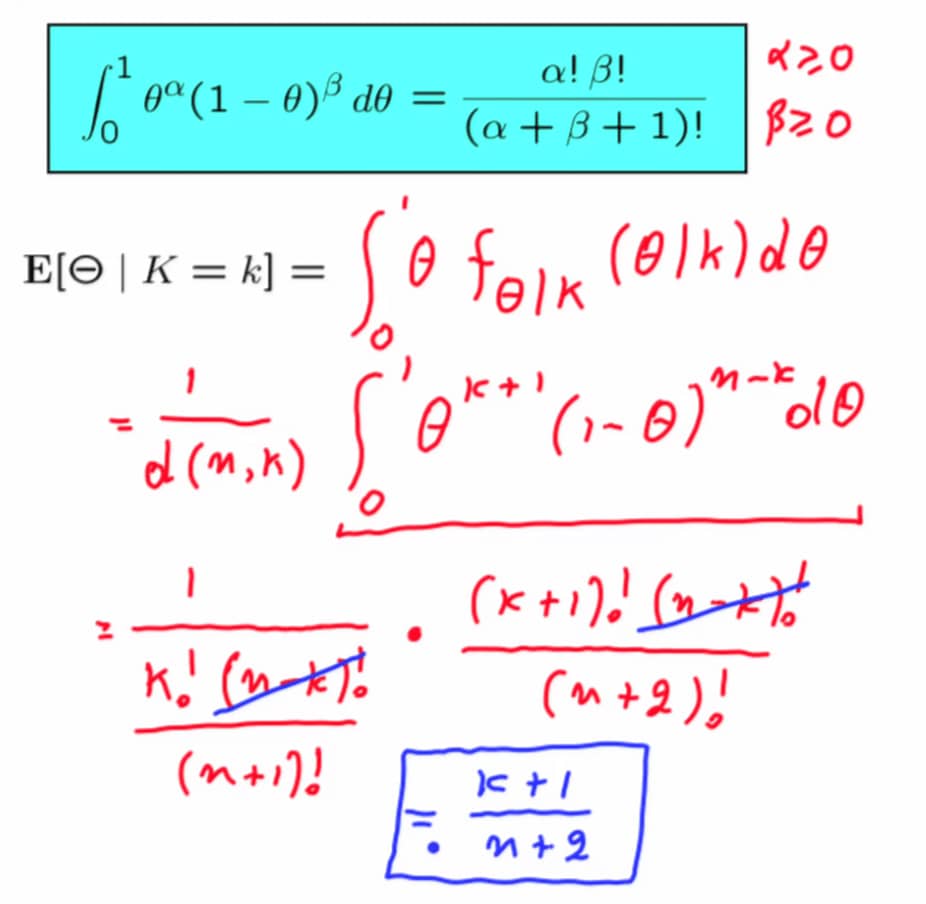 ∫₀¹ θ^α (1 − θ)^β dθ = α! β! / (α + β + 1)!   α ≥ 0
β ≥ 0
E[Θ | K = k] = ∫₀¹ θ f_{Θ|K} (θ|k) dθ
= 1 / d(n,k) ∫₀¹ θ^{k+1} (1−θ)^{n−k} dθ
= 1 / (k! (n−k)! / (n+1)!) · (k+1)! (n−k)! / (n+2)!
= (k+1) / (n+2)